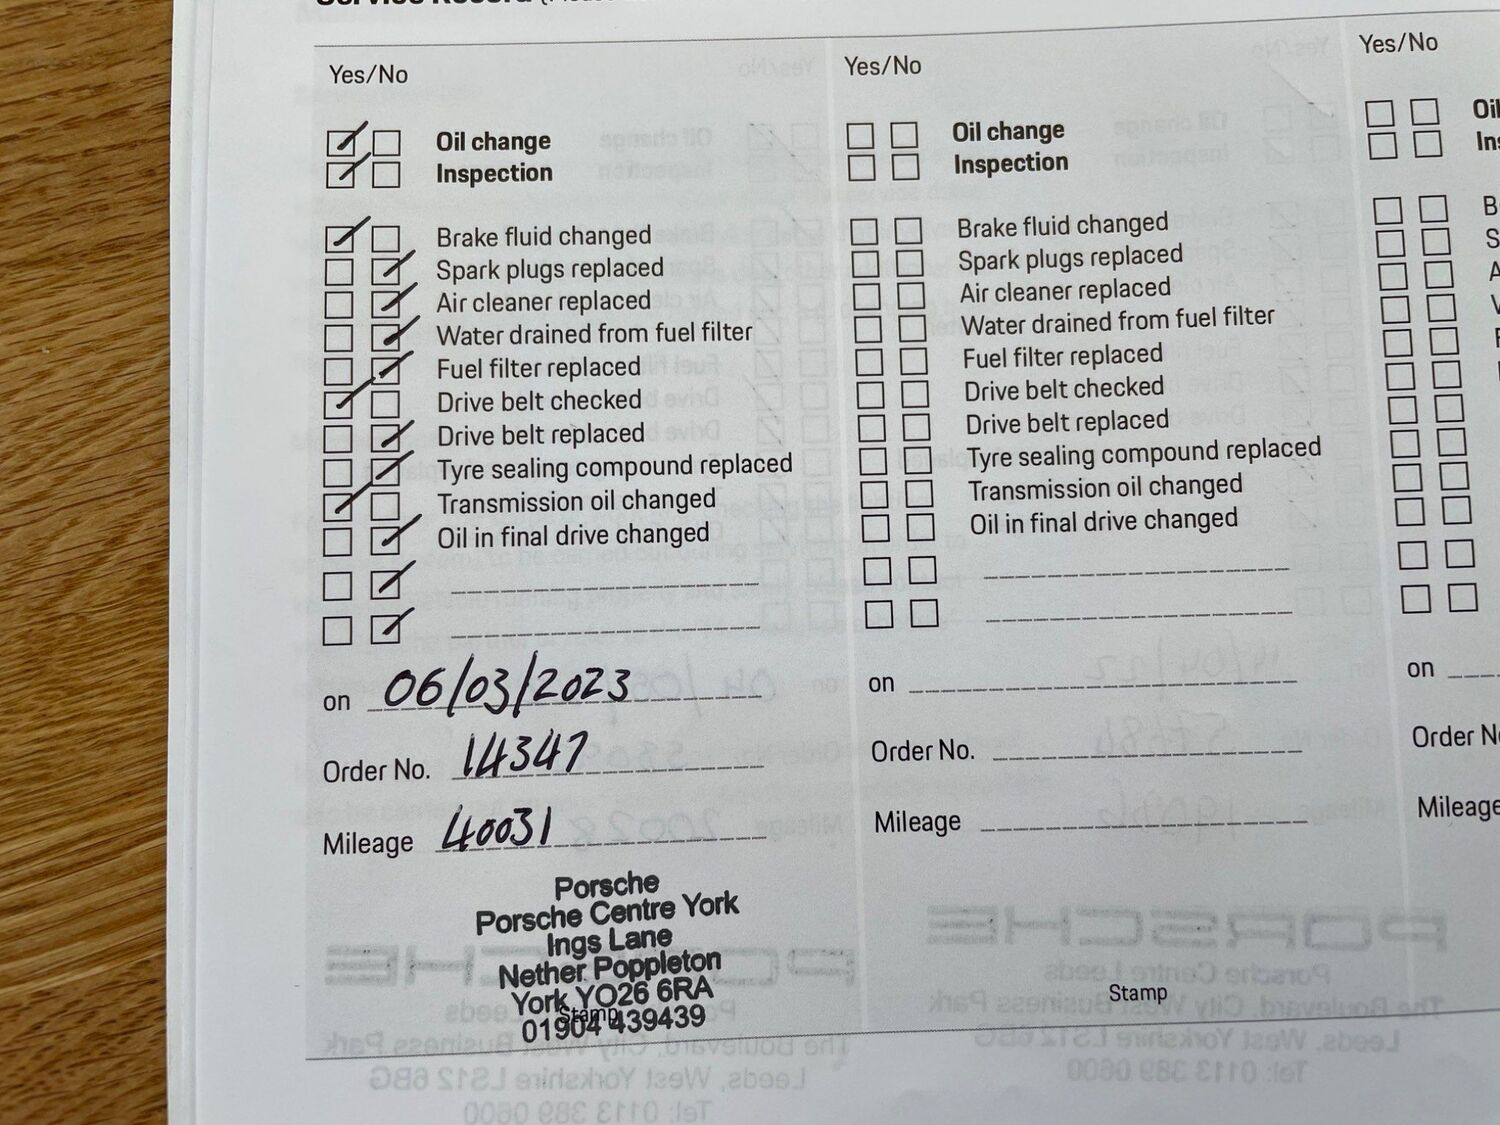 Service Record
Yes/No
Oil change
Inspection
Brake fluid changed
Spark plugs replaced
Air cleaner replaced
Water drained from fuel filter
Fuel filter replaced
Drive belt checked
Drive belt replaced
Tyre sealing compound replaced
Transmission oil changed
Oil in final drive changed
on 06/03/2023
Order No. 14347
Mileage 40031
Porsche
Porsche Centre York
Ings Lane
Nether Poppleton
York YO26 6RA
Stamp
01904 439439
Yes/No
Oil change
Inspection
Brake fluid changed
Spark plugs replaced
Air cleaner replaced
Water drained from fuel filter
Fuel filter replaced
Drive belt checked
Drive belt replaced
Tyre sealing compound replaced
Transmission oil changed
Oil in final drive changed
on
Order No.
Mileage
Stamp
Yes/No
Oil
on
Mileage